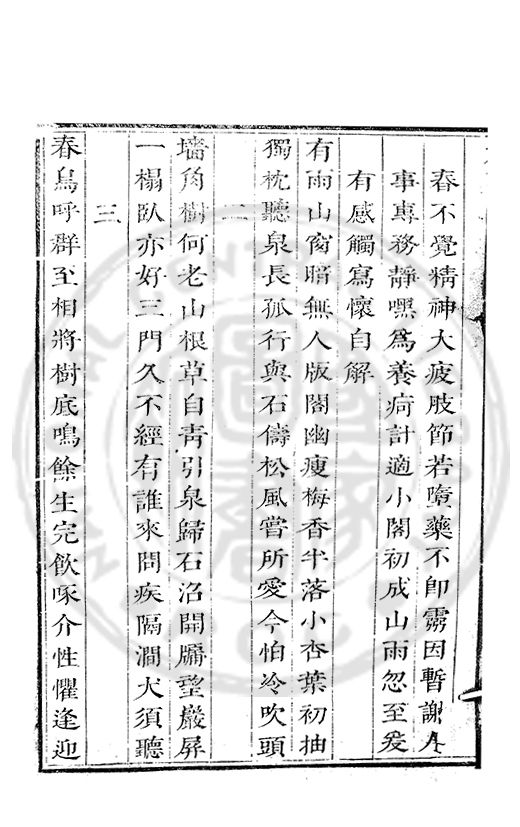 春不覺精神大疲肢節若墮藥不卽霧因暫謝人
事專務靜嘿爲養疴計適小閣初成山雨忽至爰
有感觸寫懷自解
有雨山窗暗無人版閣幽瘦梅香半落小杏葉初抽
獨枕聽泉長孤行與石儔松風嘗所愛今怕冷吹頭
二
墻角樹何老山根草自靑引泉歸石沼開牖望巖屏
一榻臥亦好三門久不經有誰來問疾隔澗犬須聽
三
春鳥呼群至相將樹底鳴餘生完飮啄介性懼逢迎